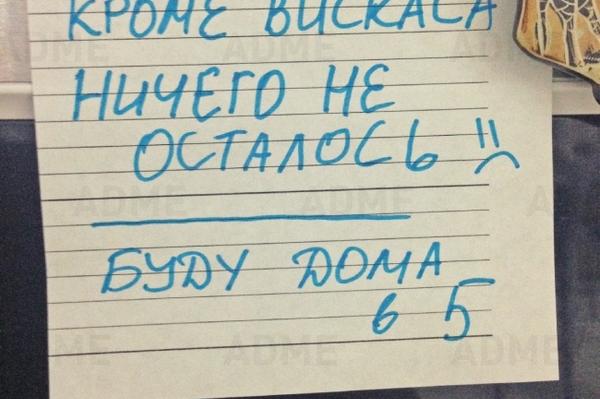 КРОМЕ ВИСКАСА
НИЧЕГО НЕ
ОСТАЛОСЬ
БУДУ ДОМА
в 5
ADME
ADME
ADME
ADME
ADME
ADME